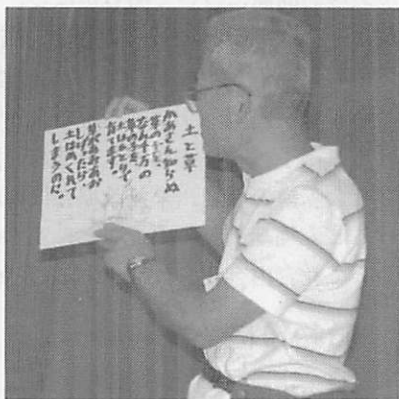 土と草
かあさん知らぬ
草の子を、
なん千万の
草の子を、
土はひとりで
育てます。
草があおあお
しげったら、
土はかくれて
しまうのに。